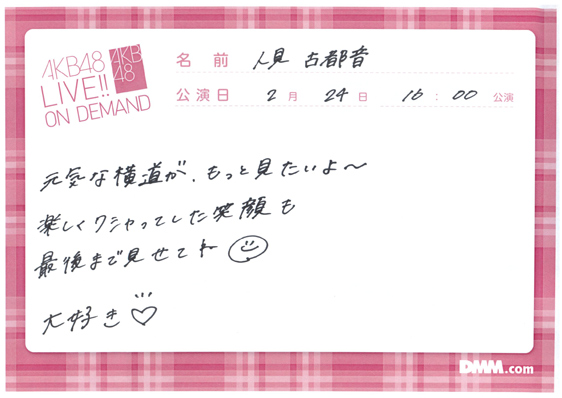 AKB48
LIVE!!
ON DEMAND
AKB
48
名前 人見 古都音
公演日 2月 24日 16:00 公演
元気な横道が、もっと見たいよ〜
楽しくクシャってした笑顔も
最後まで見せてね
大好き♡
DMM.com